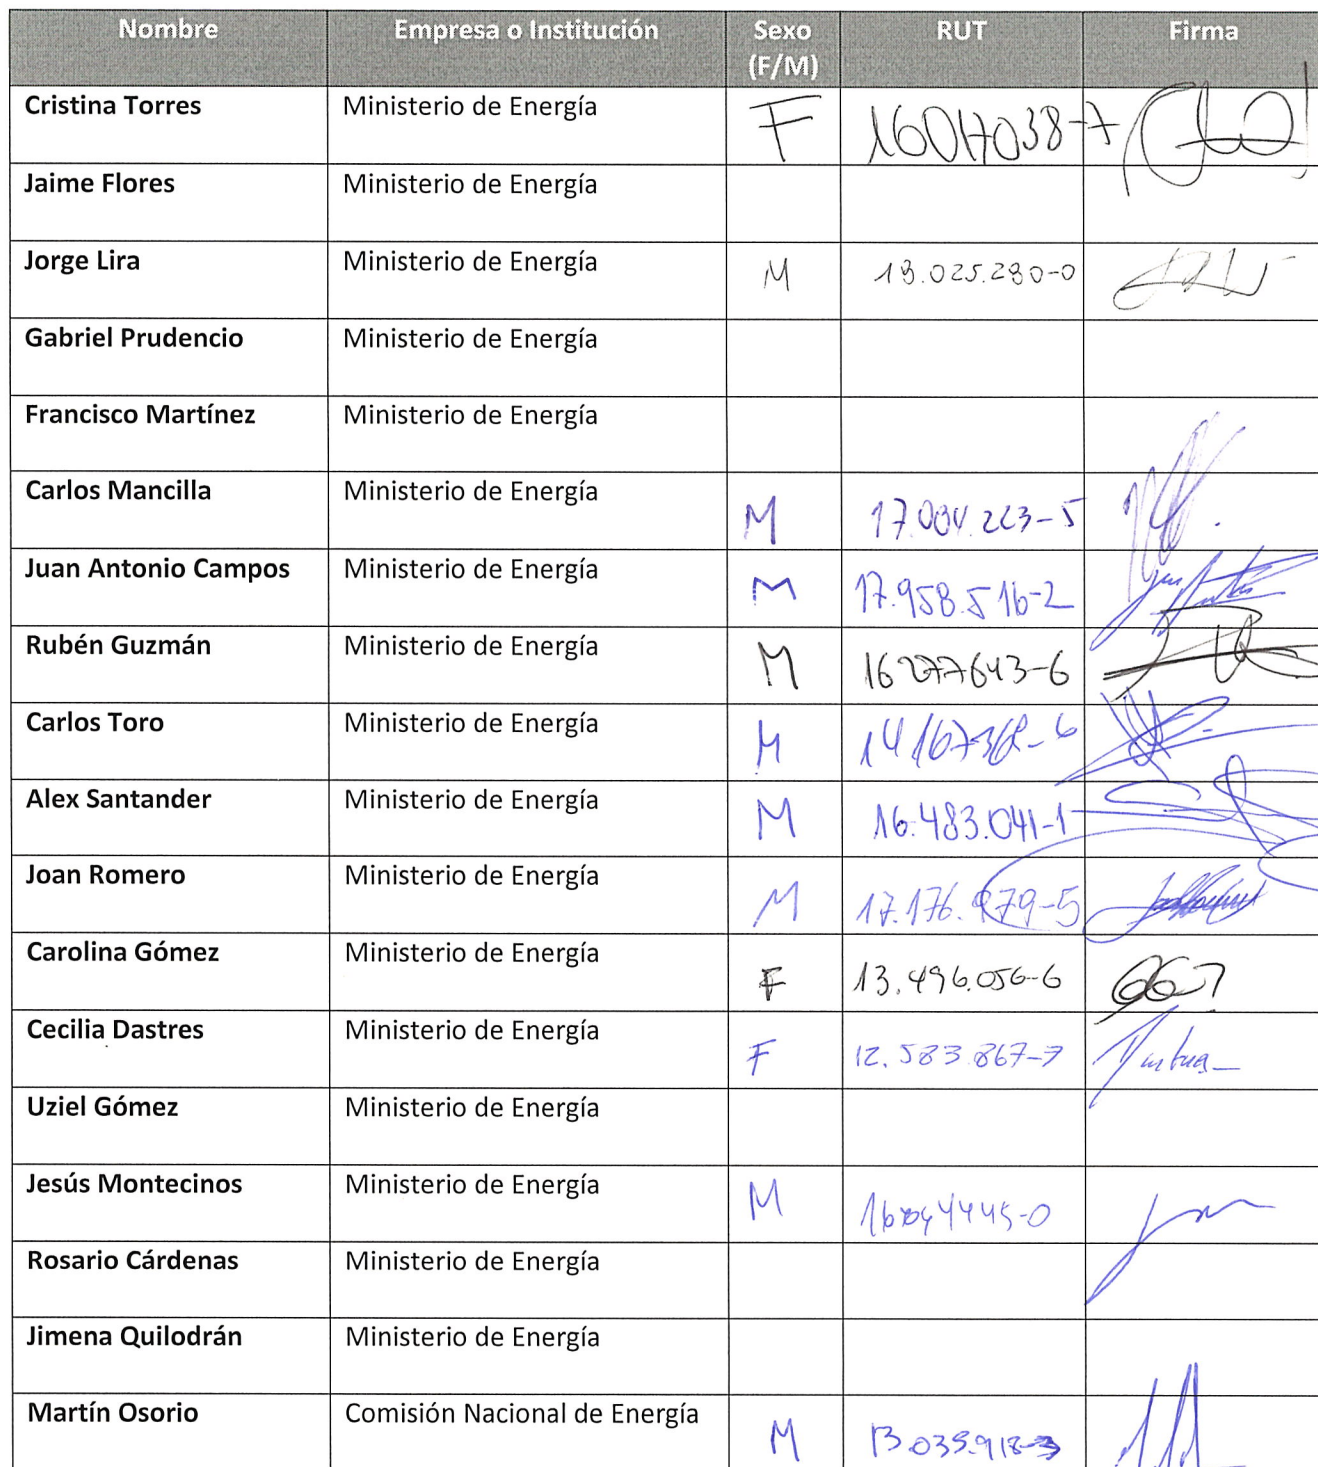 Nombre Empresa o Institución Sexo (F/M) RUT Firma
Cristina Torres Ministerio de Energía F 16017038-7
Jaime Flores Ministerio de Energía
Jorge Lira Ministerio de Energía M 13.025.230-0
Gabriel Prudencio Ministerio de Energía
Francisco Martínez Ministerio de Energía
Carlos Mancilla Ministerio de Energía M
Juan Antonio Campos Ministerio de Energía M 17.958.516-2
Rubén Guzmán Ministerio de Energía M 16277643-6
Carlos Toro Ministerio de Energía M
Alex Santander Ministerio de Energía M 16.483.041-1
Joan Romero Ministerio de Energía M 17.176.979-5
Carolina Gómez Ministerio de Energía F 13.496.056-6
Cecilia Dastres Ministerio de Energía F 12.583.867-7
Uziel Gómez Ministerio de Energía
Jesús Montecinos Ministerio de Energía M
Rosario Cárdenas Ministerio de Energía
Jimena Quilodrán Ministerio de Energía
Martín Osorio Comisión Nacional de Energía M 13.035.918-3